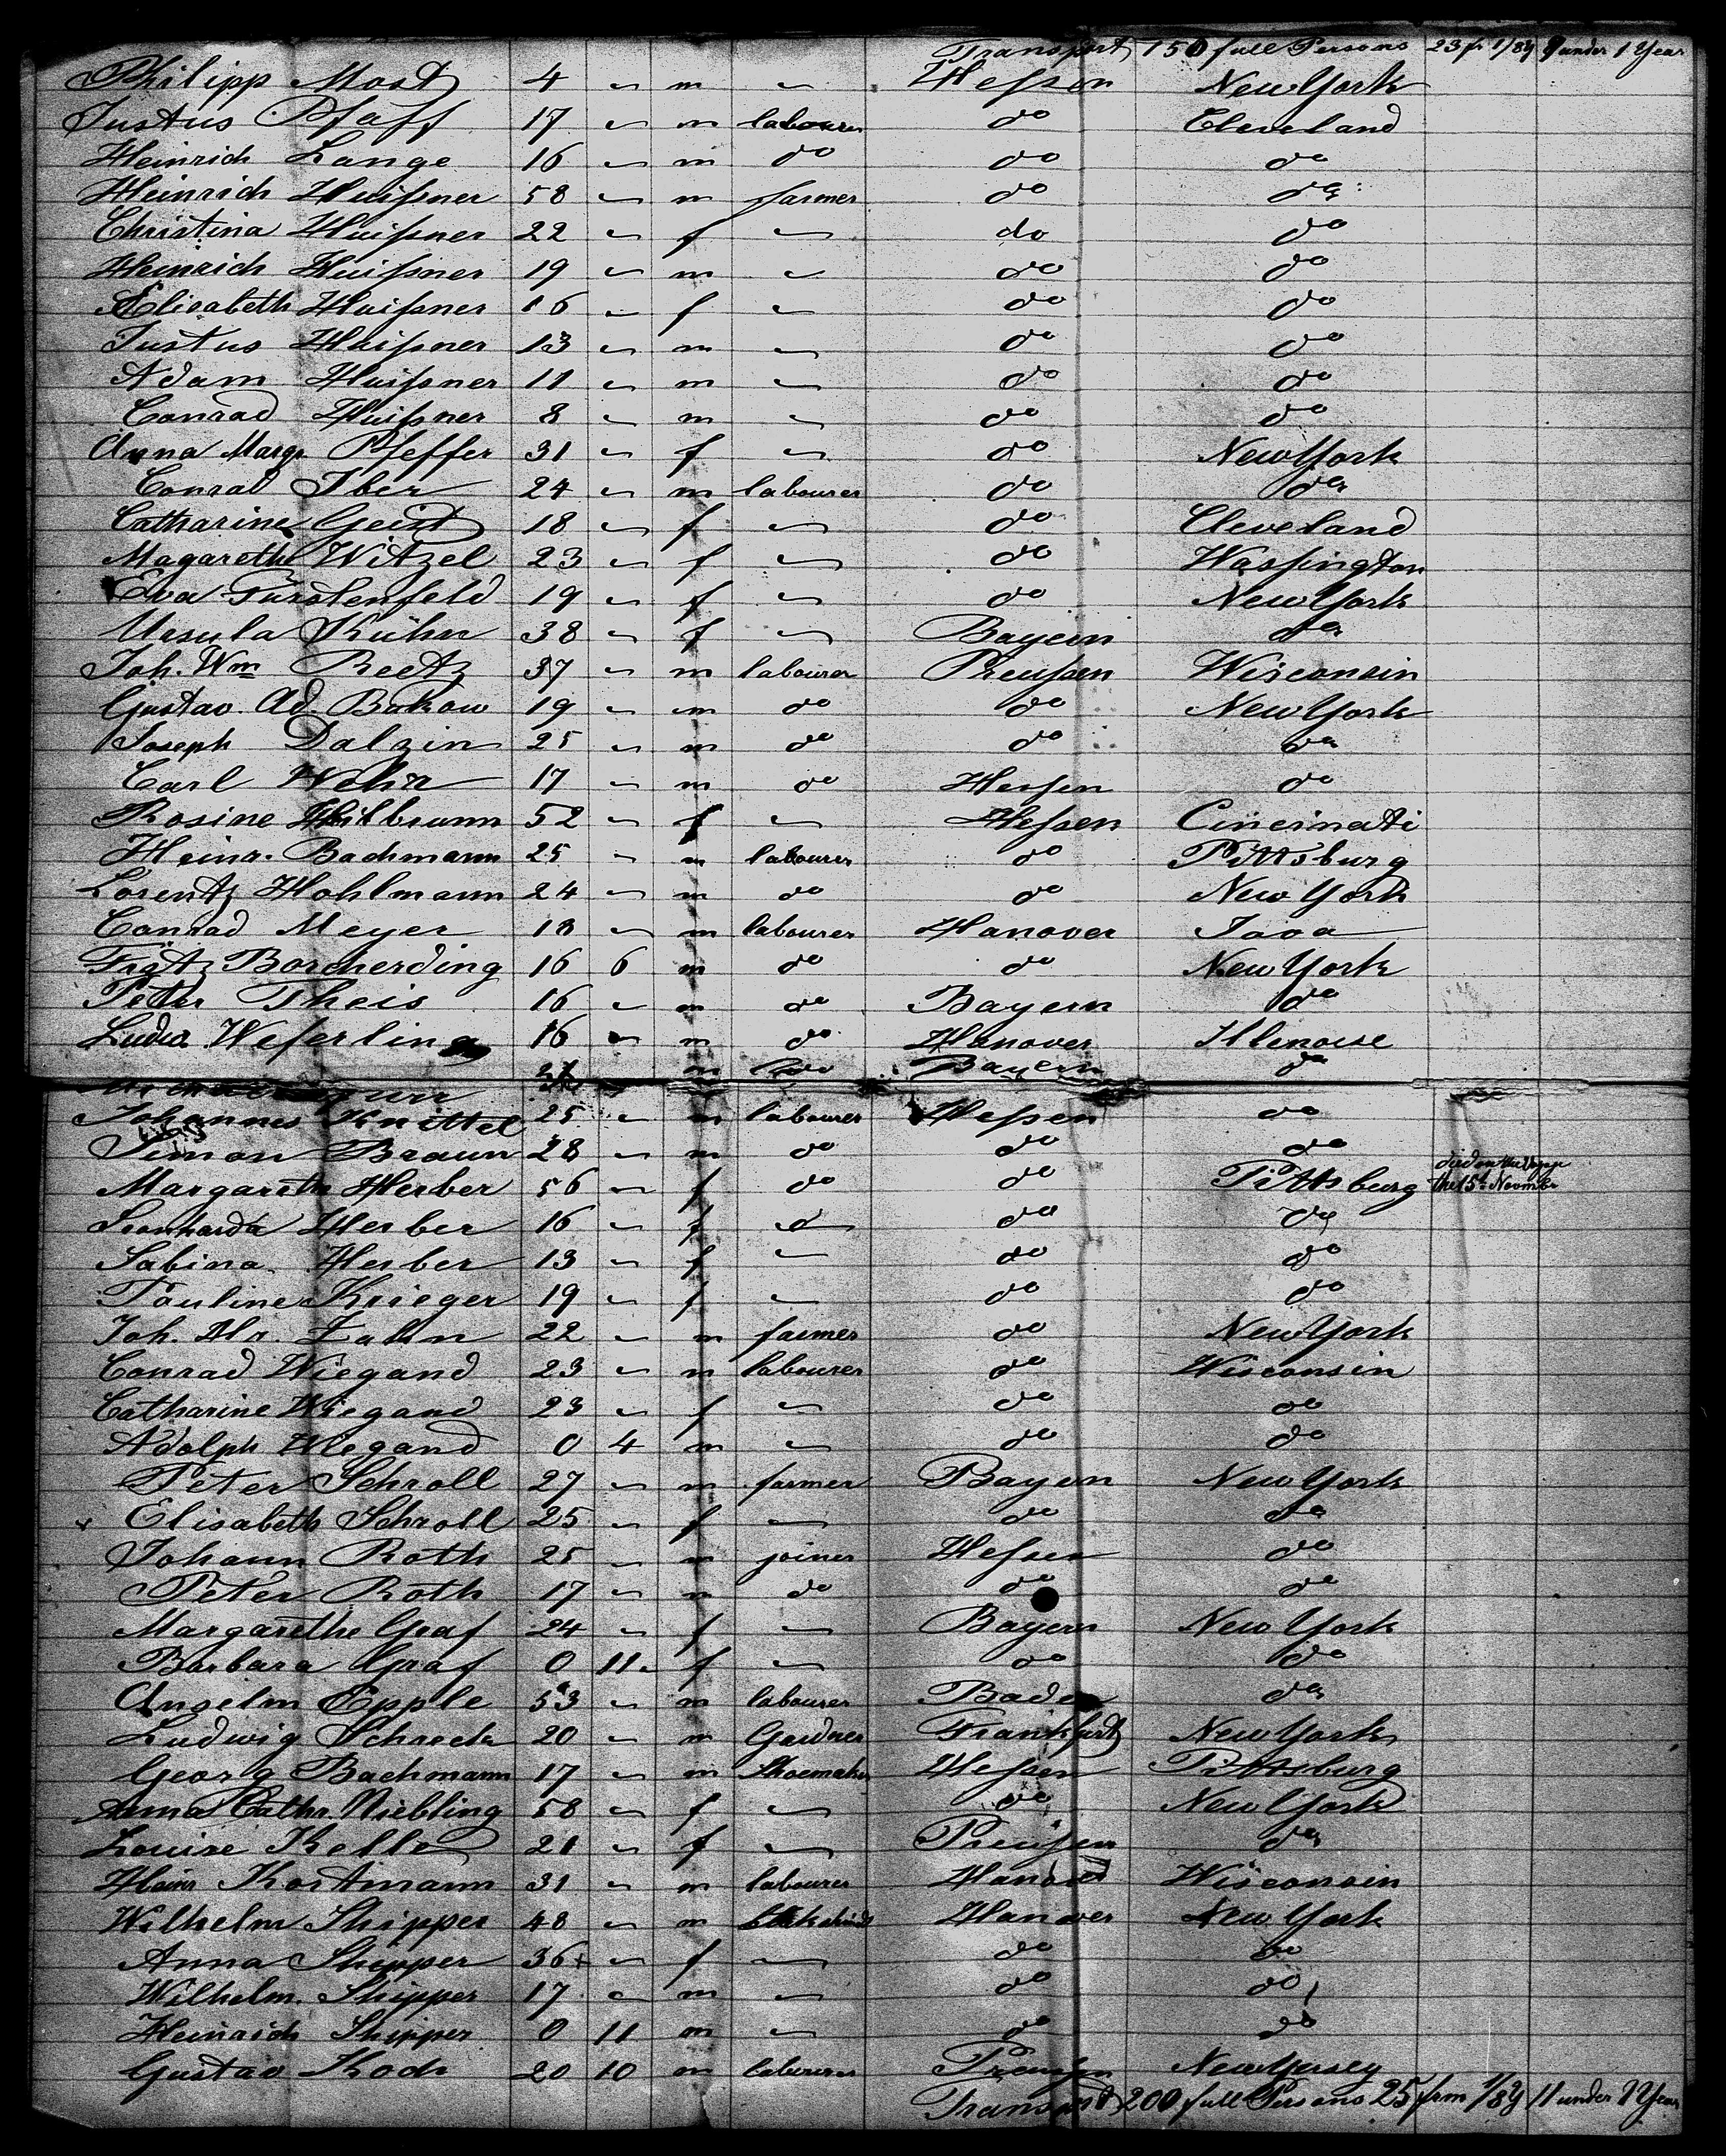 Transport, 150 full Persons 23 fr 1/8y 9 under 1 Year
Philipp Most 4 m Hessen New York
Justus Pfaff 17 m labourer do Cleveland
Heinrich Lange 16 m do do do
Heinrich Huißner 58 m farmer do do
Christina Huißner 22 f do do
Heinrich Huißner 19 m do do
Elisabeth Huißner 16 f do do
Justus Huißner 13 m do do
Adam Huißner 11 m do do
Conrad Huißner 8 m do do
Anna Margr. Pfeffer 31 f do New York
Conrad Iber 24 m labourer do do
Catharine Geist 18 f do Cleveland
Magarethe Witzel 23 f do Wassington
Eva Fürstenfeld 19 f do New York
Ursula Kühn 38 f Bayern do
Joh. Wm Reetz 37 m labourer Preußen Wisconsin
Gustav Ad. Bukow 19 m do do New York
Joseph Dalzin 25 m do do do
Carl Wehr 17 m do Hessen do
Rosine Hilbrunn 52 f Hessen Cincinati
Heinr. Bachmann 25 m labourer do Pittsburg
Lorentz Hohlmann 24 m do do New York
Conrad Meyer 18 m labourer Hanover Iova
Fritz Borcherding 16 6 m do do New York
Peter Theis 16 m do Bayern do
Ludw. Weferling 16 m do Hanover Ilenoise
m do Bayern do
Johannes Knittel 25 m labourer Hessen do
Simon Braun 28 m do do do
Margareta Herber 56 f do do Pittsburg died on the the 15t Novmbr
Leonharda Herber 16 f do do
Sabina Herber 13 f do do
Pauline Krieger 19 f do do
Joh. Zahn 22 m farmer do New York
Conrad Wiegand 23 m labourer do Wisconsin
Catharine Wiegand 23 f do do
Adolph Wiegand 0 4 m do do
Peter Schroll 27 m farmer Bayern New York
x Elisabeth Schroll 25 f do do
Johann Roth 25 m joiner Hessen do
Peter Roth 17 m do do do
Margarethe Graf 24 f Bayern New York
Barbara Graf 0 11 f do do
Anselm Epple 53 m labourer Baden do
Ludwig Schreck 20 m Gardner Frankfurt New York
Georg Bachmann 17 m Shoemaker Hessen Pittsburg
Anna Cathr. Niebling 58 f do New York
Louise Kelle 21 f Preußen do
Heinr Kortmann 31 m labourer Hanover Wisconsin
Wilhelm Shipper 48 m Hanover New York
Anna Shipper 36 f do do
Wilhelm Shipper 17 m do do
Heinrich Shipper 0 11 m do do
Gustav Koch 20 10 m labourer Preußen New Yersey
Transport 200 full Persons 25 frm 1/8y 11 under 1 Year